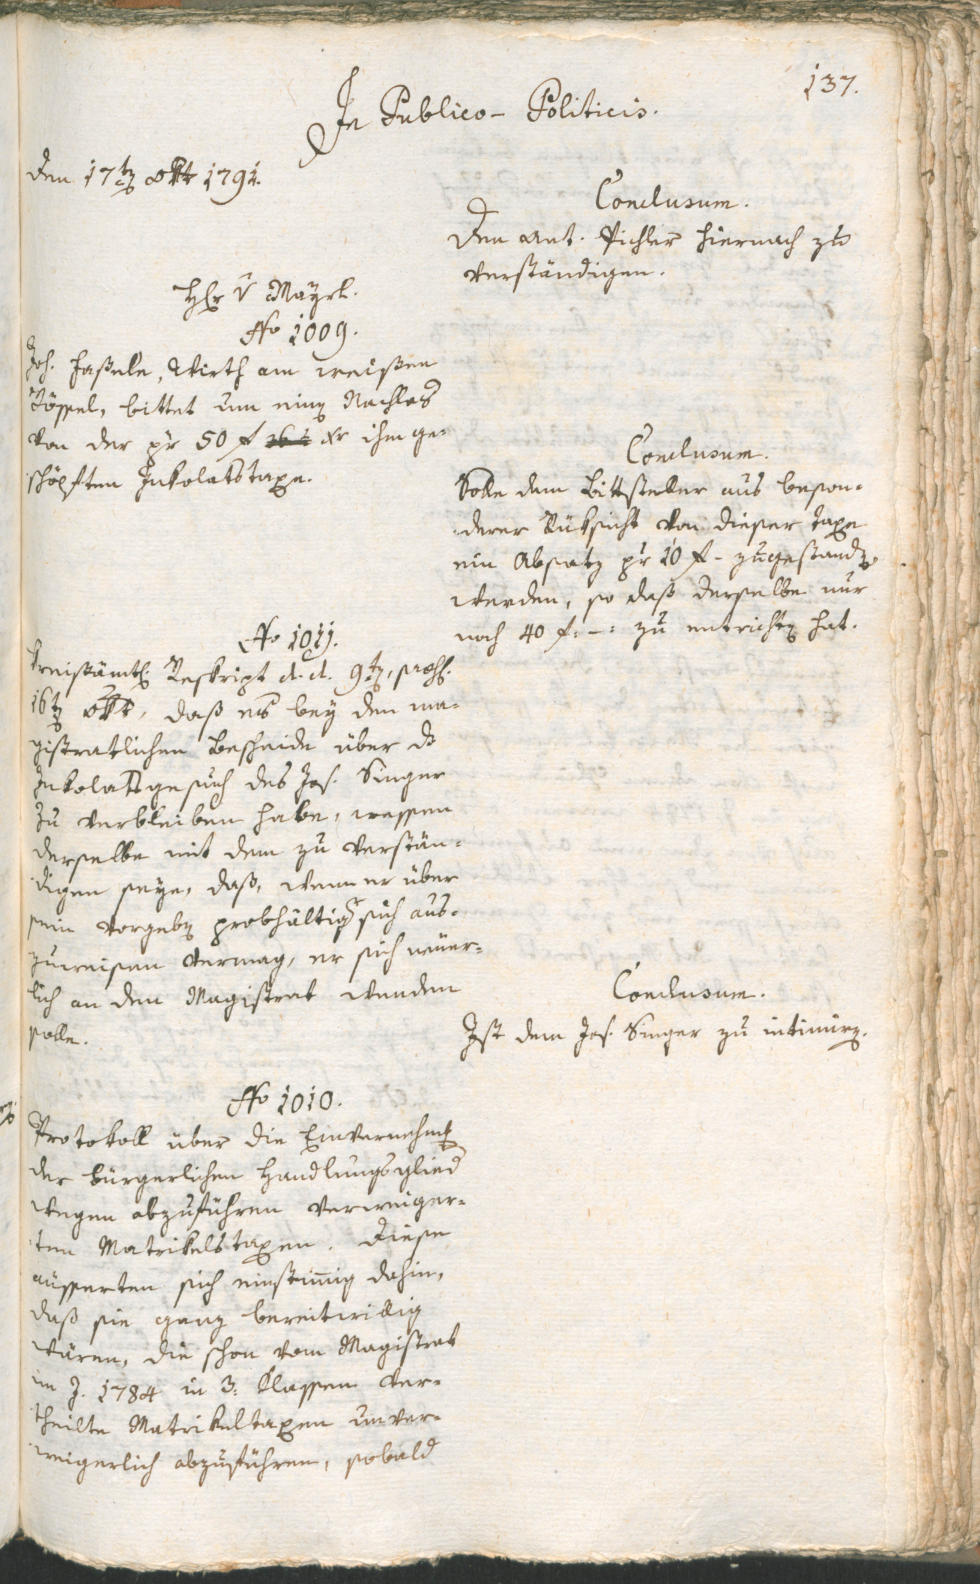 137.
In Publico-Politicis.
Den 17t Okt 1791.
Conclusum.
Den Ant. Pichler hiernach zu
verständigen.
Hr v Mayrl.
No 1009.
Joh. Haßele, Wirth am weißen
Rössel, bittet um einen Nachlas
von der pr 50 f xr ihm ge-
schöpften Inkolatstaxe.
Conclusum.
Solle dem Bittsteller aus beson-
derer Rüksicht von dieser Taxe
ein Absatz pr 10 f - zugestanden
werden, so daß derselbe nur
noch 40 f: -: zu entrichten hat.
No 1011.
Kreisämtl. Reskript d. d. 9t, praes.
16t Okt, daß es bey dem ma-
gistratlichen Bescheide über d
Inkolatsgesuch des Jos. Singer
zu verbleiben habe, wessen
derselbe mit dem zu verstän-
digen seye, daß, wenn er über
sein Vorgeben probhältig sich aus-
zuweisen vermag, er sich neuer-
lich an den Magistrat wenden
solle.
Conclusum.
Ist dem Jos. Singer zu intimiren.
No 1010.
Protokoll über die Einvernehmung
der bürgerlichen Handlungsglied
wegen abzuführen verweiger-
ten Matrikelstaxen. Diese
äusserten sich einstimmig dahin,
daß sie ganz bereitwillig
wären, die schon vom Magistrat
im J. 1784 in 3: Klassen ver-
theilte Matrikeltaxen unver-
weigerlich abzuführen, sobald